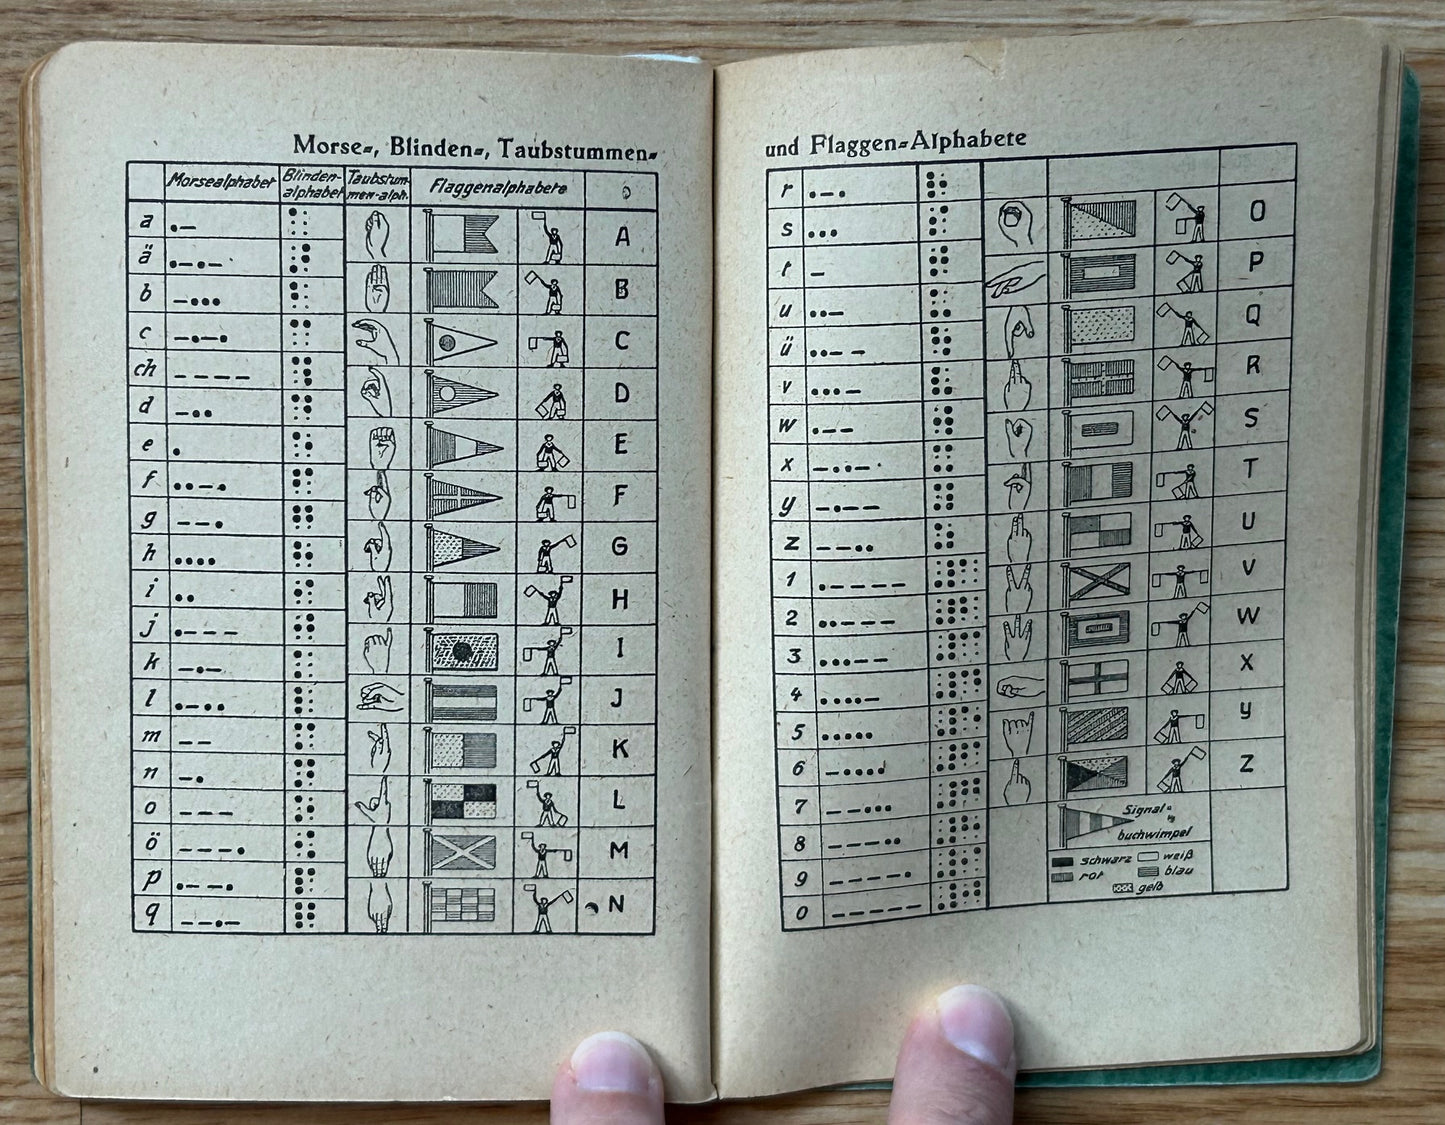 Morse-, Blinden-, Taubstummen-
Morsealphabet Blinden-alphabet Taubstum-men-alph. Flaggenalphabete
a •— A
ä •—•—
b —••• B
c —•—• C
ch ————
d —•• D
e • E
f ••—• F
g ——• G
h •••• H
i •• I
j •——— J
k —•— K
l •—•• L
m —— M
n —• N
o ———
ö ———•
p •——•
q ——•—
und Flaggen-Alphabete
r •—• O
s ••• P
t — Q
u ••— R
ü ••—— S
v •••— T
w •—— U
x —••— V
y —•—— W
z ——•• X
1 •———— y
2 ••——— Z
3 •••——
4 ••••—
5 •••••
6 —••••
7 ——•••
8 ———••
9 ————•
0 —————
Signal-
buchwimpel
schwarz weiß
rot blau
gelb